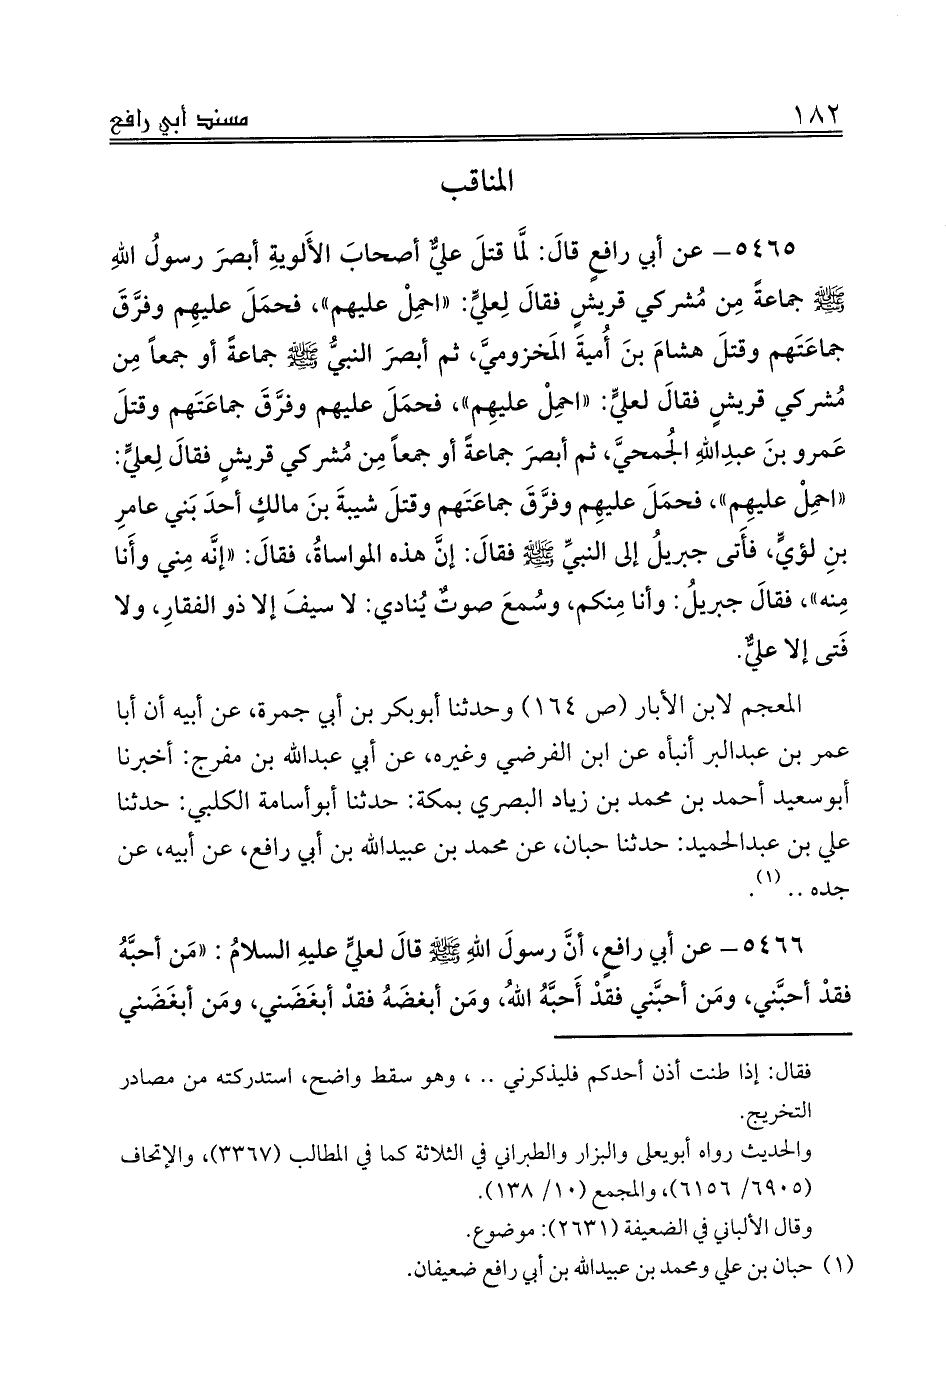 ١٨٢ مسند أبي رافع
المناقب
٥٤٦٥ــ عن أبي رافعٍ قالَ: لمَّا قتلَ عليٌّ أصحابَ الألويةِ أبصرَ رسولُ اللهِ
ﷺ جماعةً مِن مُشركي قريشٍ فقالَ لِعليٍّ: «احمِلْ عليهم»، فحمَلَ عليهِم وفرَّقَ
جماعَتَهم وقتلَ هشامَ بنَ أُميةَ المَخزوميَّ، ثم أبصرَ النبيُّ ﷺ جماعةً أو جمعاً مِن
مُشركي قريشٍ فقالَ لعليٍّ: «احمِلْ عليهِم»، فحمَلَ عليهم وفرَّقَ جماعَتَهم وقتلَ
عَمرو بنَ عبدِاللهِ الجُمحيَّ، ثم أبصرَ جماعةً أو جمعاً مِن مُشركي قريشٍ فقالَ لِعليٍّ:
«احمِلْ عليهِم»، فحمَلَ عليهِم وفرَّقَ جماعَتَهم وقتلَ شيبةَ بنَ مالكٍ أحدَ بَني عامرِ
بنِ لؤيٍّ، فأَتى جبريلُ إلى النبيِّ ﷺ فقالَ: إنَّ هذه المواساةُ، فقالَ: «إنَّه مِني وأَنا
مِنه»، فقالَ جبريلُ: وأَنا مِنكم، وسُمعَ صوتٌ يُنادي: لا سيفَ إلا ذو الفقارِ، ولا
فَتى إلا عليٌّ.
المعجم لابن الأبار (ص ١٦٤) وحدثنا أبوبكر بن أبي جمرة، عن أبيه أن أبا
عمر بن عبدالبر أنبأه عن ابن الفرضي وغيره، عن أبي عبدالله بن مفرج: أخبرنا
أبوسعيد أحمد بن محمد بن زياد البصري بمكة: حدثنا أبوأسامة الكلبي: حدثنا
علي بن عبدالحميد: حدثنا حبان، عن محمد بن عبيدالله بن أبي رافع، عن أبيه، عن
جده .. (١).
٥٤٦٦ــ عن أبي رافعٍ، أنَّ رسولَ اللهِ ﷺ قالَ لعليٍّ عليهِ السلامُ: «مَن أحبَّهُ
فقدْ أحبَّني، ومَن أحبَّني فقدْ أَحبَّهُ اللهُ، ومَن أبغضَهُ فقدْ أبغَضَني، ومَن أبغَضَني
فقال: إذا طنت أذن أحدكم فليذكرني .. ، وهو سقط واضح، استدركته من مصادر
التخريج.
والحديث رواه أبويعلى والبزار والطبراني في الثلاثة كما في المطالب (٣٣٦٧)، والإتحاف
(٦٩٠٥/ ٦١٥٦)، والمجمع (١٠/ ١٣٨).
وقال الألباني في الضعيفة (٢٦٣١): موضوع.
(١) حبان بن علي ومحمد بن عبيدالله بن أبي رافع ضعيفان.